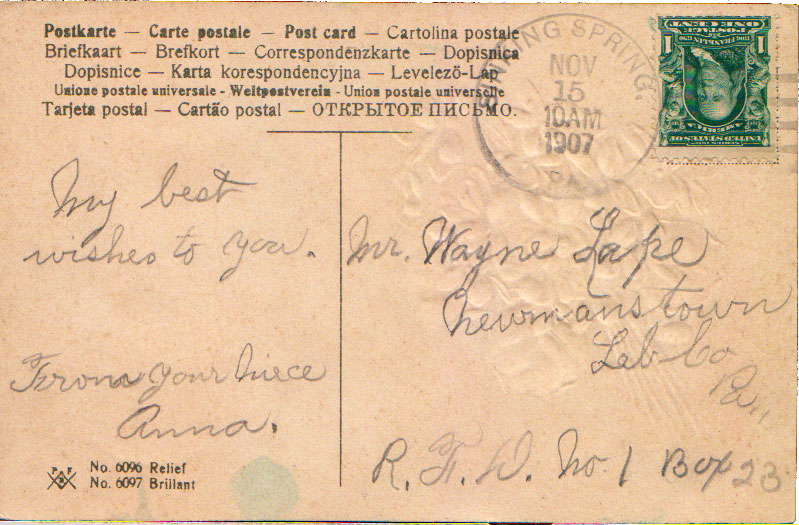 Postkarte — Carte postale — Post card — Cartolina postale
Briefkaart — Brefkort — Correspondenzkarte — Dopisnica
Dopisnice — Karta korespondencyjna — Levelező-Lap
Unione postale universale - Weltpostverein - Union postale universelle
Tarjeta postal — Cartão postal — ОТКРЫТОЕ ПИСЬМО.
SINKING SPRING,
NOV
15
10AM
1907
PA.
POSTAGE
ONE CENT
1 FRANKLIN 1
UNITED STATES OF
AMERICA
My best
wishes to you.
From your niece
Anna.
Mr. Wayne Lape
Newmanstown
Leb Co
Pa.,
R. F. D. No. 1 Box 23
P F
B
No. 6096 Relief
No. 6097 Brillant